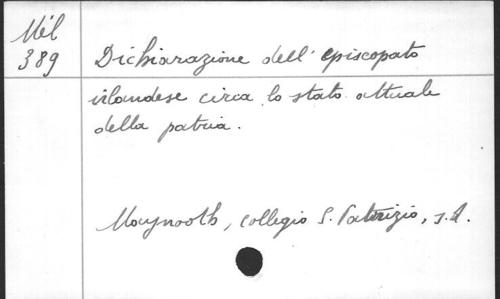 Mél
389
Dichiarazione dell' episcopato
irlandese circa lo stato attuale
della patria.
Maynooth, collegio S. Patrizio, s.d.